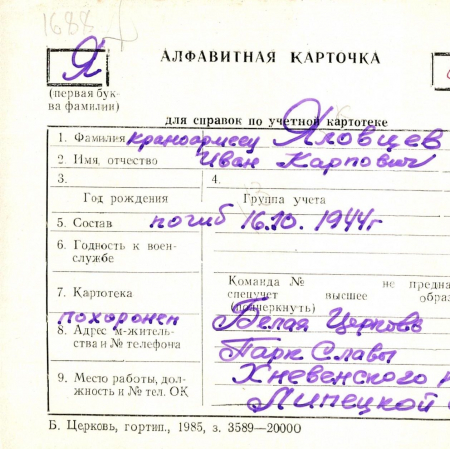 1688
Я
АЛФАВИТНАЯ КАРТОЧКА
(первая бук-
ва фамилии)
для справок по учетной картотеке
1. Фамилия красноармеец Яловцев
2. Имя, отчество Иван Карпович
3.
4.
Год рождения
Группа учета
5. Состав погиб 16.10. 1944г
6. Годность к воен-
службе
7. Картотека
Команда № не предна
спецучет высшее образ
(подчеркнуть)
похоронен Белая Церковь
8. Адрес м-житель-
ства и № телефона
Парк Славы
9. Место работы, дол-
жность и № тел. ОК
Хлевенского
Липецкой
Б. Церковь, гортип., 1985, з. 3589—20000